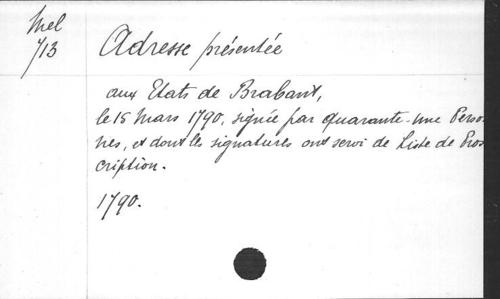 Mel
713
Adresse présentée
aux Etats de Brabant,
le 15 Mars 1790, signée par quarante-une Person-
nes, et dont les signatures ont servi de Liste de Pros-
cription.
1790.